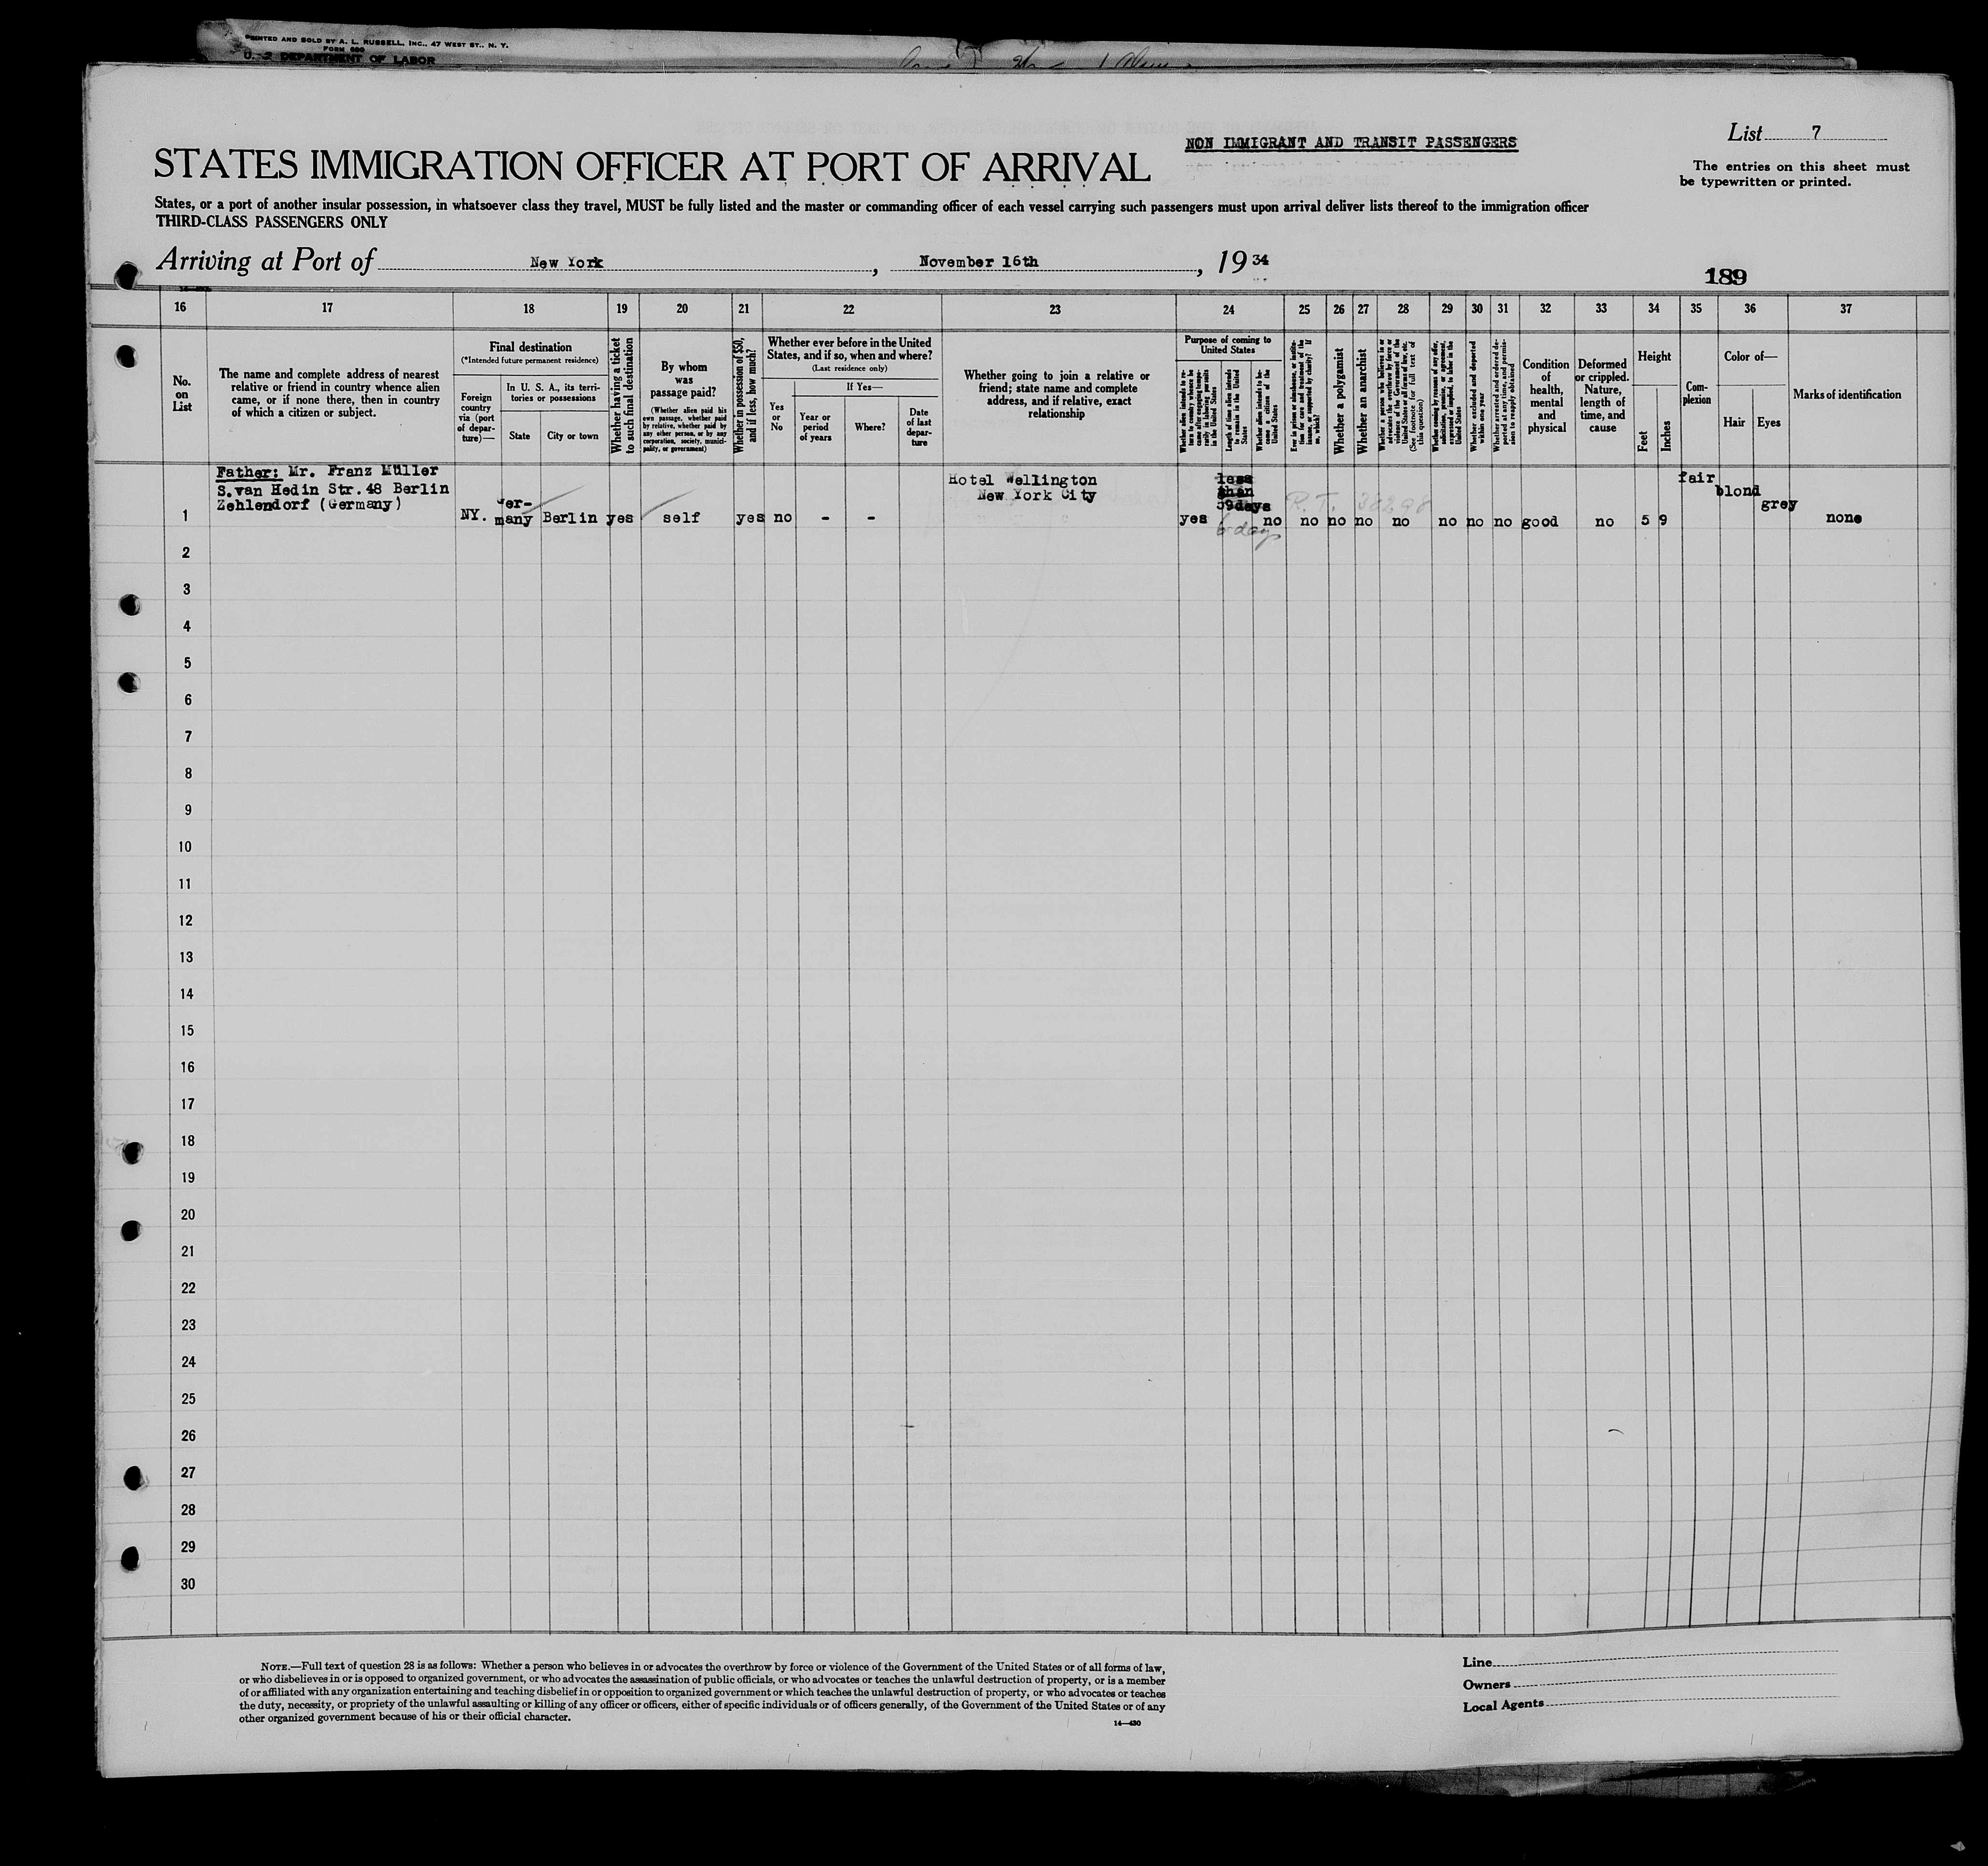 PRINTED AND SOLD BY A. L. RUSSELL, INC., 47 WEST ST., N. Y.
FORM 680
U. S. DEPARTMENT OF LABOR
NON IMMIGRANT AND TRANSIT PASSENGERS
List 7
STATES IMMIGRATION OFFICER AT PORT OF ARRIVAL
The entries on this sheet must
be typewritten or printed.
States, or a port of another insular possession, in whatsoever class they travel, MUST be fully listed and the master or commanding officer of each vessel carrying such passengers must upon arrival deliver lists thereof to the immigration officer
THIRD-CLASS PASSENGERS ONLY
Arriving at Port of New York, November 16th, 1934
189
16 17 18 19 20 21 22 23 24 25 26 27 28 29 30 31 32 33 34 35 36 37
No.
on
List
The name and complete address of nearest
relative or friend in country whence alien
came, or if none there, then in country
of which a citizen or subject.
Final destination
(*Intended future permanent residence)
Foreign
country
via (port
of depar-
ture)—
In U. S. A., its terri-
tories or possessions
State
City or town
Whether having a ticket
to such final destination
By whom
was
passage paid?
(Whether alien paid his
own passage, whether paid
by relative, whether paid by
any other person, or by any
corporation, society, munici-
pality, or government)
Whether in possession of $50,
and if less, how much?
Whether ever before in the United
States, and if so, when and where?
(Last residence only)
Yes
or
No
If Yes—
Year or
period
of years
Where?
Date
of last
depar-
ture
Whether going to join a relative or
friend; state name and complete
address, and if relative, exact
relationship
Purpose of coming to
United States
Whether alien intends to re-
turn to country whence he
came after engaging tempo-
rarily in laboring pursuits
in the United States
Length of time alien intends
to remain in the United
States
Whether alien intends to be-
come a citizen of the
United States
Ever in prison or almshouse, or institu-
tion for care and treatment of the
insane, or supported by charity? If
so, which?
Whether a polygamist
Whether an anarchist
Whether a person who believes in or
advocates the overthrow by force or
violence of the Government of the
United States or all forms of law, etc.
(See footnote for full text of
this question)
Whether coming by reasons of any offer,
solicitation, promise, or agreement,
expressed or implied, to labor in the
United States
Whether excluded and deported
within one year
Whether arrested and ordered de-
ported at any time, and permis-
sion to reapply obtained
Condition
of
health,
mental
and
physical
Deformed
or crippled.
Nature,
length of
time, and
cause
Height
Feet
Inches
Com-
plexion
Color of—
Hair
Eyes
Marks of identification
Father: Mr. Franz Müller
S.van Hedin Str.48 Berlin
Zehlendorf (Germany)
Hotel Wellington
New York City
less
than
59days
fair
blond
grey
R.T. 38298
1 NY. Ger-
many Berlin yes self yes no - - yes no no no no no no no no good no 5 9 none
6 days
2
3
4
5
6
7
8
9
10
11
12
13
14
15
16
17
18
19
20
21
22
23
24
25
26
27
28
29
30
NOTE.—Full text of question 28 is as follows: Whether a person who believes in or advocates the overthrow by force or violence of the Government of the United States or of all forms of law,
or who disbelieves in or is opposed to organized government, or who advocates the assassination of public officials, or who advocates or teaches the unlawful destruction of property, or is a member
of or affiliated with any organization entertaining and teaching disbelief in or opposition to organized government or which teaches the unlawful destruction of property, or who advocates or teaches
the duty, necessity, or propriety of the unlawful assaulting or killing of any officer or officers, either of specific individuals or of officers generally, of the Government of the United States or of any
other organized government because of his or their official character.
14—430
Line
Owners
Local Agents